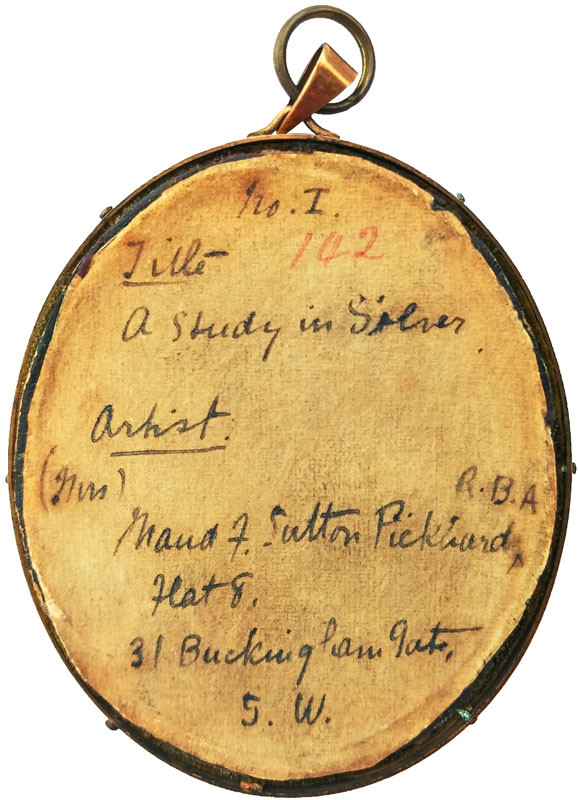 No. I.
102
Title
A Study in Silver.
Artist.
(Mrs) R.B.A
Maud F. Sutton Pickhard
Flat 8.
31 Buckingham Gate,
S. W.